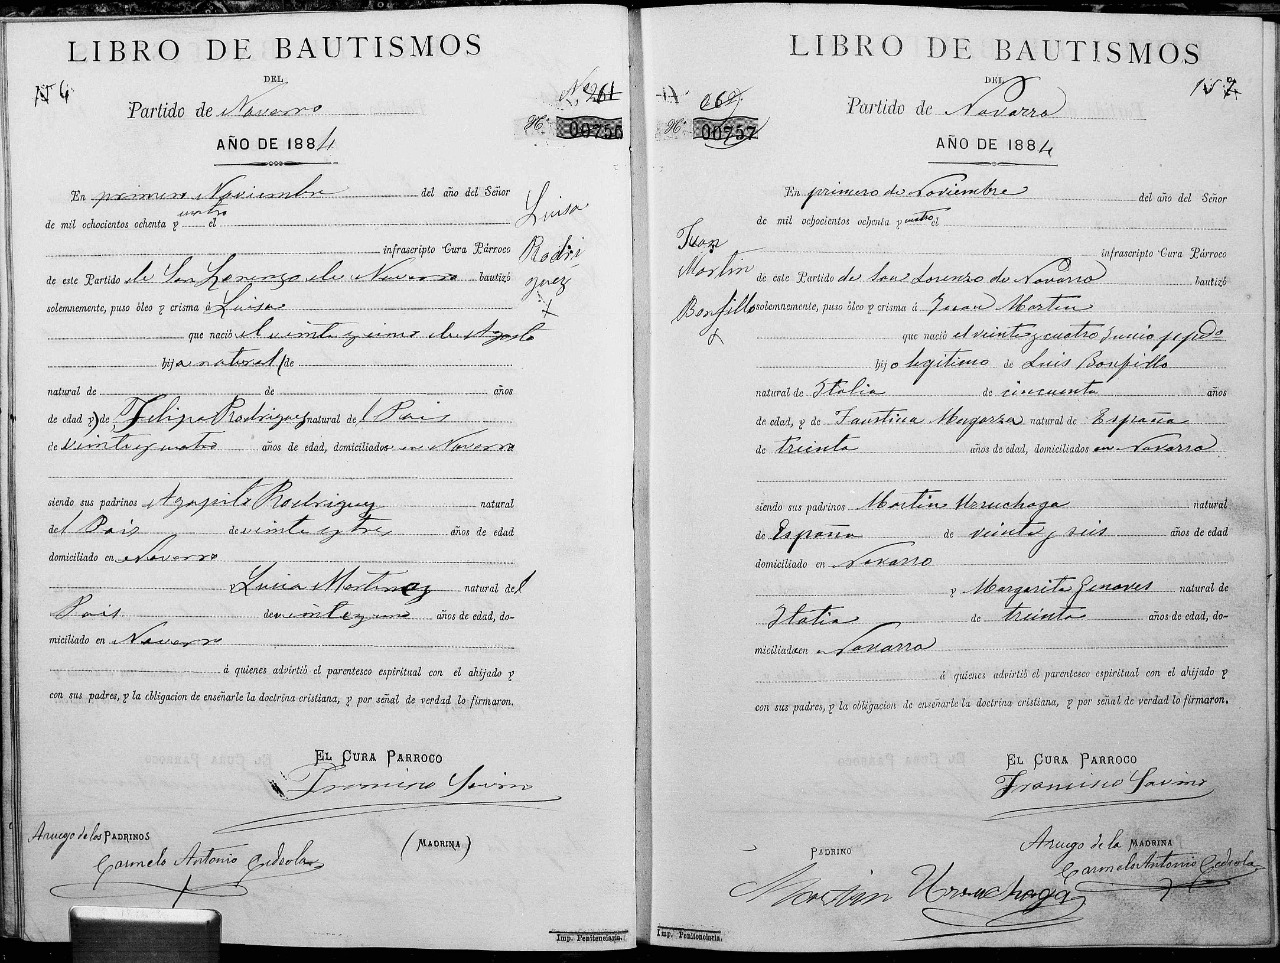 LIBRO DE BAUTISMOS
DEL
Nº 4
Nº 261
Partido de Navarro
Nº 00756
AÑO DE 1884
En primero Noviembre del año del Señor
de mil ochocientos ochenta y cuatro el
infrascripto Cura Párroco
de este Partido de San Lorenzo de Navarro bautizó
solemnemente, puso óleo y crisma á Luisa
que nació el veinte y uno de Agosto
hija natural (de
natural de de años
de edad y) de Felipa Rodriguez natural del Pais
de veinte y cuatro años de edad, domiciliados en Navarro
siendo sus padrinos Agapito Rodriguez natural
del Pais de veinte y tres años de edad
domiciliado en Navarro
Luisa Martinez natural del
Pais de veinte y uno años de edad, do-
miciliado en Navarro
á quienes advirtió el parentesco espiritual con el ahijado y
con sus padres, y la obligacion de enseñarle la doctrina cristiana, y por señal de verdad lo firmaron.
Luisa
Rodri
guez
EL CURA PARROCO
Francisco Savino
Aruego de los PADRINOS
(MADRINA)
Carmelo Antonio Cedrola
Imp. Penitenciaria.
LIBRO DE BAUTISMOS
DEL
262
Nº 7
Partido de Navarro
Nº 00757
AÑO DE 1884
En primero de Noviembre del año del Señor
de mil ochocientos ochenta y cuatro el
infrascripto Cura Párroco
de este Partido de San Lorenzo de Navarro bautizó
solemnemente, puso óleo y crisma á Juan Martin
que nació el veinte y cuatro Junio ppdo
hijo legitimo de Luis Bonfillo
natural de Italia de cincuenta años
de edad, y de Faustina Mugarza natural de España
de treinta años de edad, domiciliados en Navarro
siendo sus padrinos Martin Urruchaga natural
de España de veinte y seis años de edad
domiciliado en Navarro
y Margarita Genoves natural de
Italia de treinta años de edad, do-
miciliada en Navarro
á quienes advirtió el parentesco espiritual con el ahijado y
con sus padres, y la obligacion de enseñarle la doctrina cristiana, y por señal de verdad lo firmaron.
Juan
Martin
Bonfillo
EL CURA PARROCO
Francisco Savino
PADRINO
Aruego de la MADRINA
Carmelo Antonio Cedrola
Martin Urruchaga
Imp. Penitenciaria.